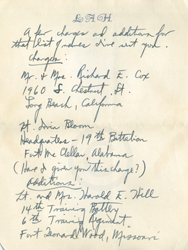 LAH
A few changes and additions for
that list, since I've sent you.
Changes:
Mr. & Mrs. Richard E. Cox
1960 S. Chestnut St.
Long Beach, California
Lt. Doris Bloom
Headquarters - 19th Battalion
Fort Mc Clellan, Alabama
(Have I given you this change?)
Additions:
Lt. and Mrs. Harold E. Hill
14th Training Battery
6th Training Regiment
Fort Leonard Wood, Missouri